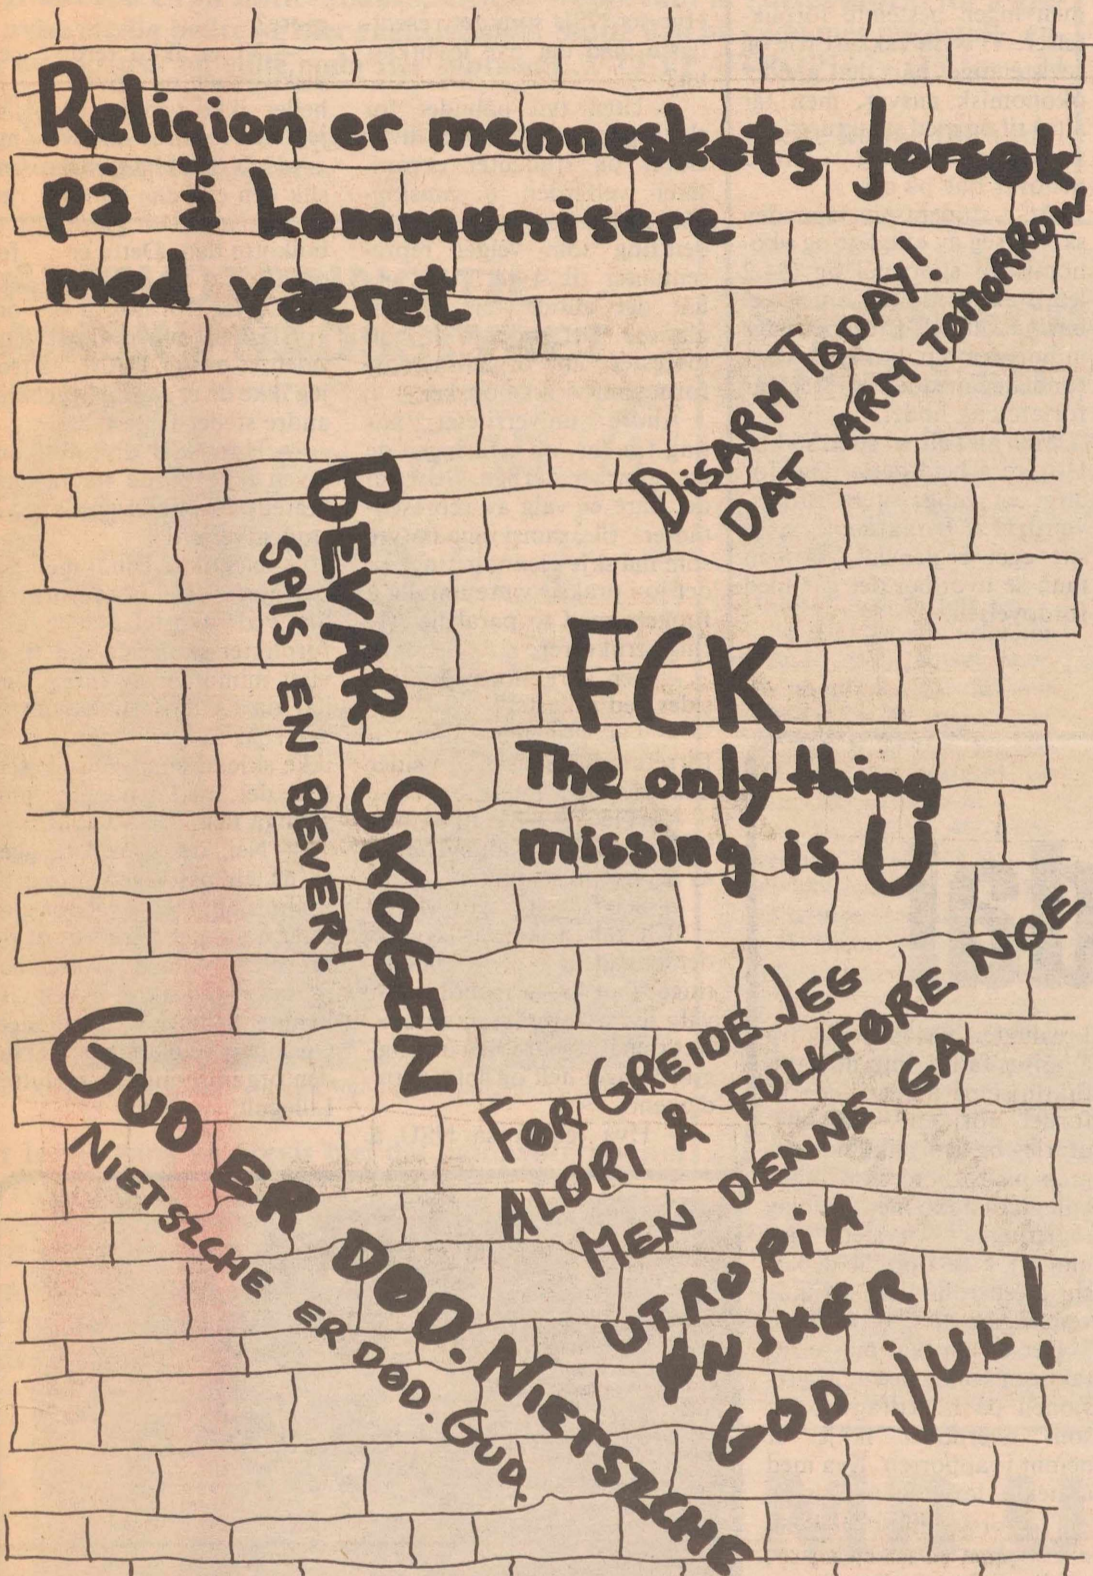 Religion er menneskets forsøk
på å kommunisere
med været
DISARM TODAY!
DAT ARM TOMORROW
BEVAR SKOGEN
SPIS EN BEVER!
FCK
The only thing
missing is U
FØR GREIDE JEG
ALDRI Å FULLFØRE NOE
MEN DENNE GA
UTROPIA
ØNSKER
GOD JUL!
GUD ER DØD. NIETSZCHE
NIETSZCHE ER DØD. GUD.